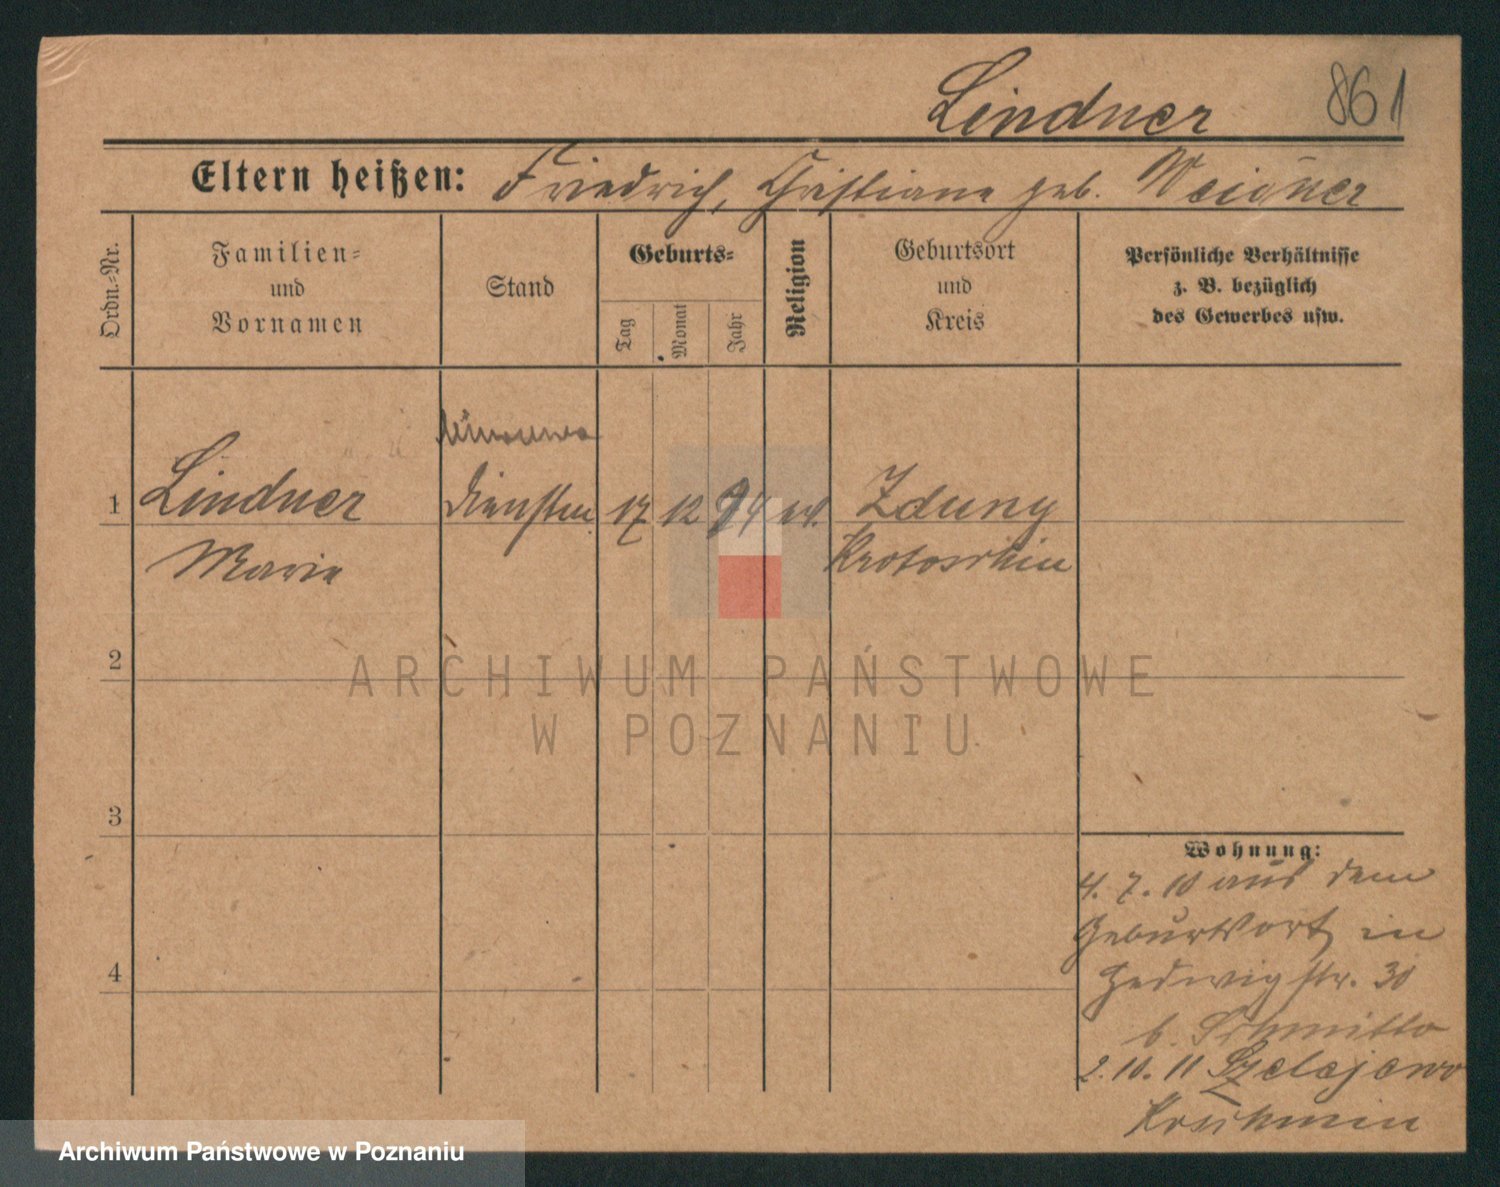 Lindner 861
Eltern heißen: Friedrich, Christiane geb.
Ordn.-Nr.
Familien-
und
Vornamen
Stand
Geburts-
Tag
Monat
Jahr
Religion
Geburtsort
und
Kreis
Persönliche Verhältnisse
z. B. bezüglich
des Gewerbes usw.
1 Lindner 17 12 94 Zduny
Marie Krotoschin
2
3
4
Wohnung:
4. 7. 10 aus dem
Geburtsort in
Hedwigstr. 30
b.
2. 10. 11 Szelejewo
Koschmin
ARCHIWUM PAŃSTWOWE
W POZNANIU
Archiwum Państwowe w Poznaniu